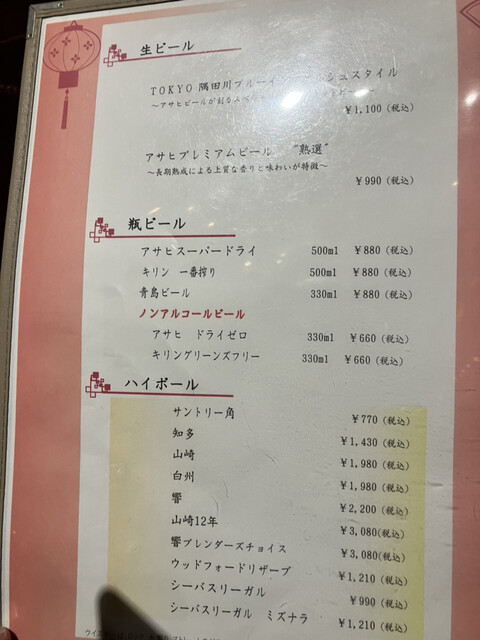 生ビール
TOKYO 隅田川ブルーイ シュスタイル
～アサヒビールが創るスペシ
￥1,100 (税込)
アサヒプレミアムビール "熟選"
～長期熟成による上質な香りと味わいが特徴～
￥990 (税込)
瓶ビール
アサヒスーパードライ 500ml ￥880 (税込)
キリン 一番搾り 500ml ￥880 (税込)
青島ビール 330ml ￥880 (税込)
ノンアルコールビール
アサヒ ドライゼロ 330ml ￥660 (税込)
キリングリーンズフリー 330ml ￥660 (税込)
ハイボール
サントリー角 ￥770 (税込)
知多 ￥1,430 (税込)
山崎 ￥1,980 (税込)
白州 ￥1,980 (税込)
響 ￥2,200 (税込)
山崎12年 ￥3,080 (税込)
響ブレンダーズチョイス ￥3,080 (税込)
ウッドフォードリザーブ ￥1,210 (税込)
シーバスリーガル ￥990 (税込)
シーバスリーガル ミズナラ ￥1,210 (税込)